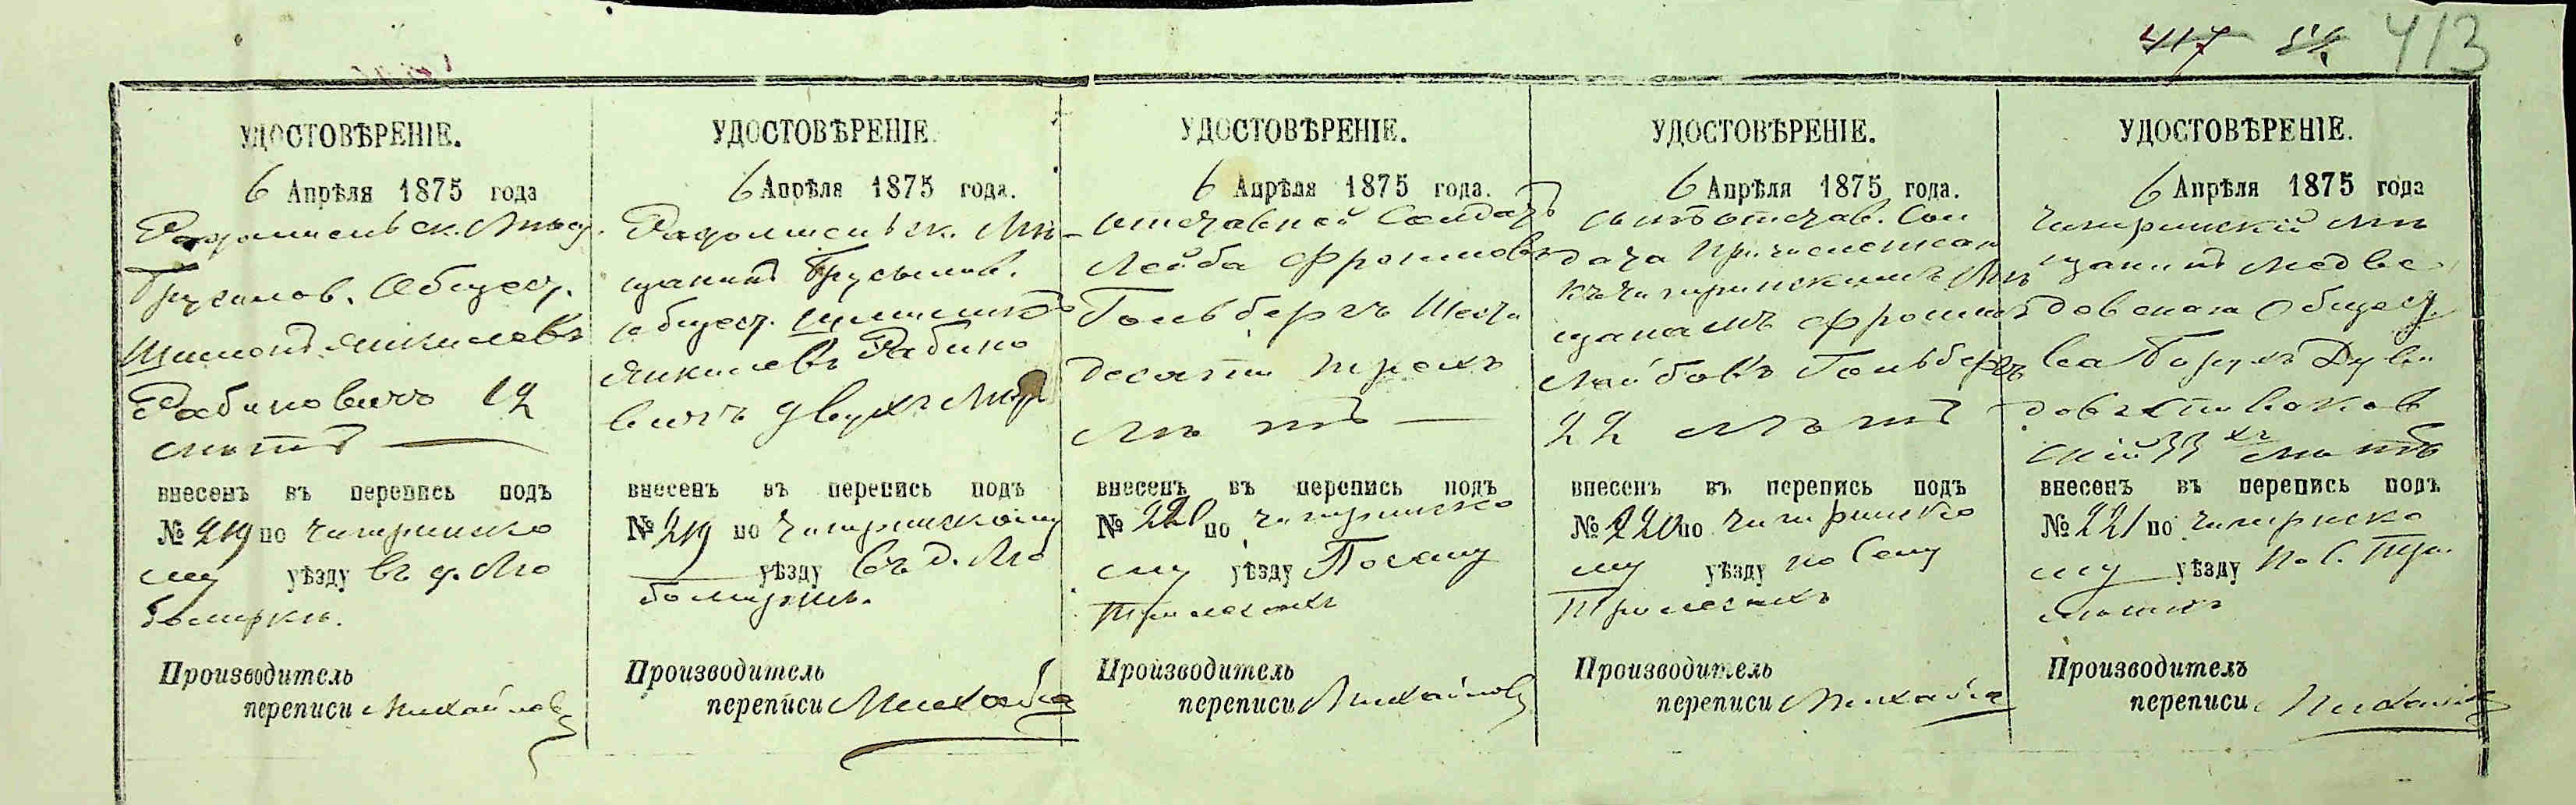 417 413
УДОСТОВѢРЕНІЕ.
6 Апрѣля 1875 года
Радомысльск. Мѣщ.
Брусилов. Общест.
Шимонъ Янкелевъ
Рабиновичъ 12
лѣтъ
внесенъ въ перепись подъ
№ 219 по Чигиринско
му уѣзду въ д. Лю
бомирки.
Производитель
переписи Михайлов
УДОСТОВѢРЕНІЕ
6 Апрѣля 1875 года.
Радомысльск. Мѣ
щанинъ Брусилов.
Общест.
Янкелевъ Рабино
вичъ двухъ лѣтъ
внесенъ въ перепись подъ
№ 219 по Чигиринскому
уѣзду въ д. Лю
бомирки.
Производитель
переписи Михайлов
УДОСТОВѢРЕНІЕ.
6 Апрѣля 1875 года.
Отставной Солдатъ
Лейба Фроимовъ
Гольбергъ Шести
десяти трехъ
лѣтъ
внесенъ въ перепись подъ
№ 220 по Чигиринско
му уѣзду По селу
Трилесахъ
Производитель
переписи Михайлов
УДОСТОВѢРЕНІЕ.
6 Апрѣля 1875 года.
Сынъ отстав. Сол
дата Причисленный
къ Чигиринскимъ Мѣ
щанамъ Фроимъ
Лейбовъ Гольбергъ
22 лѣтъ
внесенъ въ перепись подъ
№ 220 по Чигиринско
му уѣзду по Селу
Трилесахъ
Производитель
переписи Михайлов
УДОСТОВѢРЕНІЕ.
6 Апрѣля 1875 года
Чигиринскій Мѣ
щанинъ Медве
довскаго Общест
ва Борухъ Дуви
довъ
скій 33хъ лѣтъ
внесенъ въ перепись подъ
№ 221 по Чигиринско
му уѣзду по С. Три
лѣсахъ
Производитель
переписи Михайлов